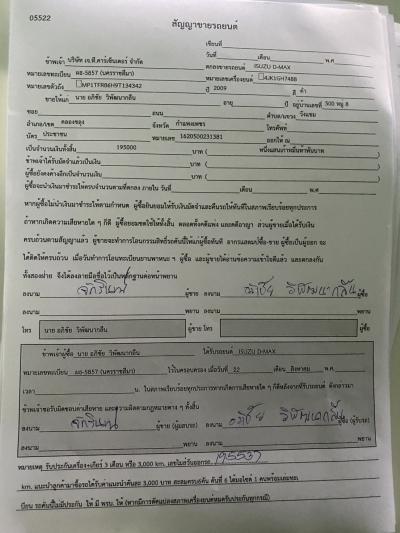 05522
สัญญาขายรถยนต์
เขียนที่
วันที่ เดือน พ.ศ
ข้าพเจ้า บริษัท เจ.ที.คาร์เซ็นเตอร์ จำกัด ตกลงขายรถยนต์ ISUZU D-MAX
หมายเลขทะเบียน ผธ-5857 (นครราชสีมา) หมายเลขเครื่องยนต์ 4JK1GH7488
หมายเลขตัวถัง MP1TFR86H9T134342 ปี 2009 สี ดำ
ขายให้แก่ นาย อภิชัย วิพัฒนากลิ่น อายุ ปี อยู่บ้านเลขที่ 500 หมู่ 8
ซอย ถนน ตำบล/แขวง วังแขม
อำเภอ/เขต คลองขลุง จังหวัด กำแพงเพชร โทรศัพท์
บัตร ประชาชน หมายเลข 1620500231381 ออกให้ ณ
เป็นจำนวนเงินทั้งสิ้น 195000 บาท ( หนึ่งแสนเก้าหมื่นห้าพันบาท )
ข้าพเจ้าได้รับมัดจำแล้วเป็นเงิน บาท ( )
ผู้ซื้อยังคงค้างอีกเป็นจำนวนเงิน บาท ( )
ผู้ซื้อจะนำเงินมาชำระให้ครบจำนวนตามที่ตกลง ภายใน วันที่ เดือน พ.ศ
หากผู้ซื้อไม่นำเงินมาชำระให้ตามกำหนด ผู้ซื้อยินยอมให้ริบเงินมัดจำและคืนรถให้ทันทีในสภาพเรียบร้อยทุกประการ
ถ้าหากเกิดความเสียหายใด ๆ ก็ดี ผู้ซื้อยอมชดใช้ให้ทั้งสิ้น ตลอดทั้งคดีแพ่ง และคดีอาญา ส่วนผู้ขายเมื่อได้รับเงิน
ครบถ้วนตามสัญญาแล้ว ผู้ขายจะทำการโอนกรรมสิทธิ์รถคันนี้ให้แก่ผู้ซื้อทันที อากรแสตมป์ซื้อ-ขาย ผู้ซื้อเป็นผู้ออก จะ
ได้ติดให้ครบถ้วน เมื่อวันทำการโอนทะเบียนยานพาหนะ ฯ ผู้ซื้อ และผู้ขายได้อ่านข้อความเข้าใจดีแล้ว และตกลงกัน
ทั้งสองฝ่าย จึงได้ลงลายมือชื่อไว้เป็นหลักฐานต่อหน้าพยาน
ลงนาม ผู้ขาย ลงนาม อภิชัย วิพัฒนากลิ่น ผู้ซื้อ
ลงนาม พยาน ลงนาม พยาน
โทร นาย อภิชัย วิพัฒนากลิ่น ผู้ขาย โทร ผู้ซื้อ
ข้าพเจ้าผู้ซื้อ นาย อภิชัย วิพัฒนากลิ่น ได้รับรถยนต์ ISUZU D-MAX
หมายเลขทะเบียน ผธ-5857 (นครราชสีมา) ไว้ในครอบครอง เมื่อวันที่ 22 เดือน สิงหาคม พ.ศ
เวลา น. ในสภาพเรียบร้อยทุกประการหากเกิดการเสียหายใด ๆ ก็ดีหลังจากที่รับรถยนต์ ดังกล่าวมา
ข้าพเจ้าขอรับผิดชอบค่าเสียหาย และความผิดตามกฎหมายต่าง ๆ ทั้งสิ้น
ลงนาม ผู้ขาย (ผู้มอบรถ) ลงนาม อภิชัย วิพัฒนากลิ่น ผู้ซื้อ (ผู้รับรถ)
ลงนาม พยาน ลงนาม พยาน
หมายเหตุ รับประกันเครื่อง+เกียร์ 3 เดือน หรือ 3,000 km. เลขไมล์วันออกรถ 195537
km. แนะนำลูกค้ามาซื้อรถได้รับค่าแนะนำคันละ 3,000 บาท สะสมครบ5คัน คันที่ 6 ได้มอไซค์ 1 คันพร้อมเล่มทะเ
บียน รถคันนี้ไม่มีประกัน ให้ มี พรบ. ให้ (หากมีการดัดแปลงสภาพเครื่องยนต์หมดรับประกันทุกกรณี)